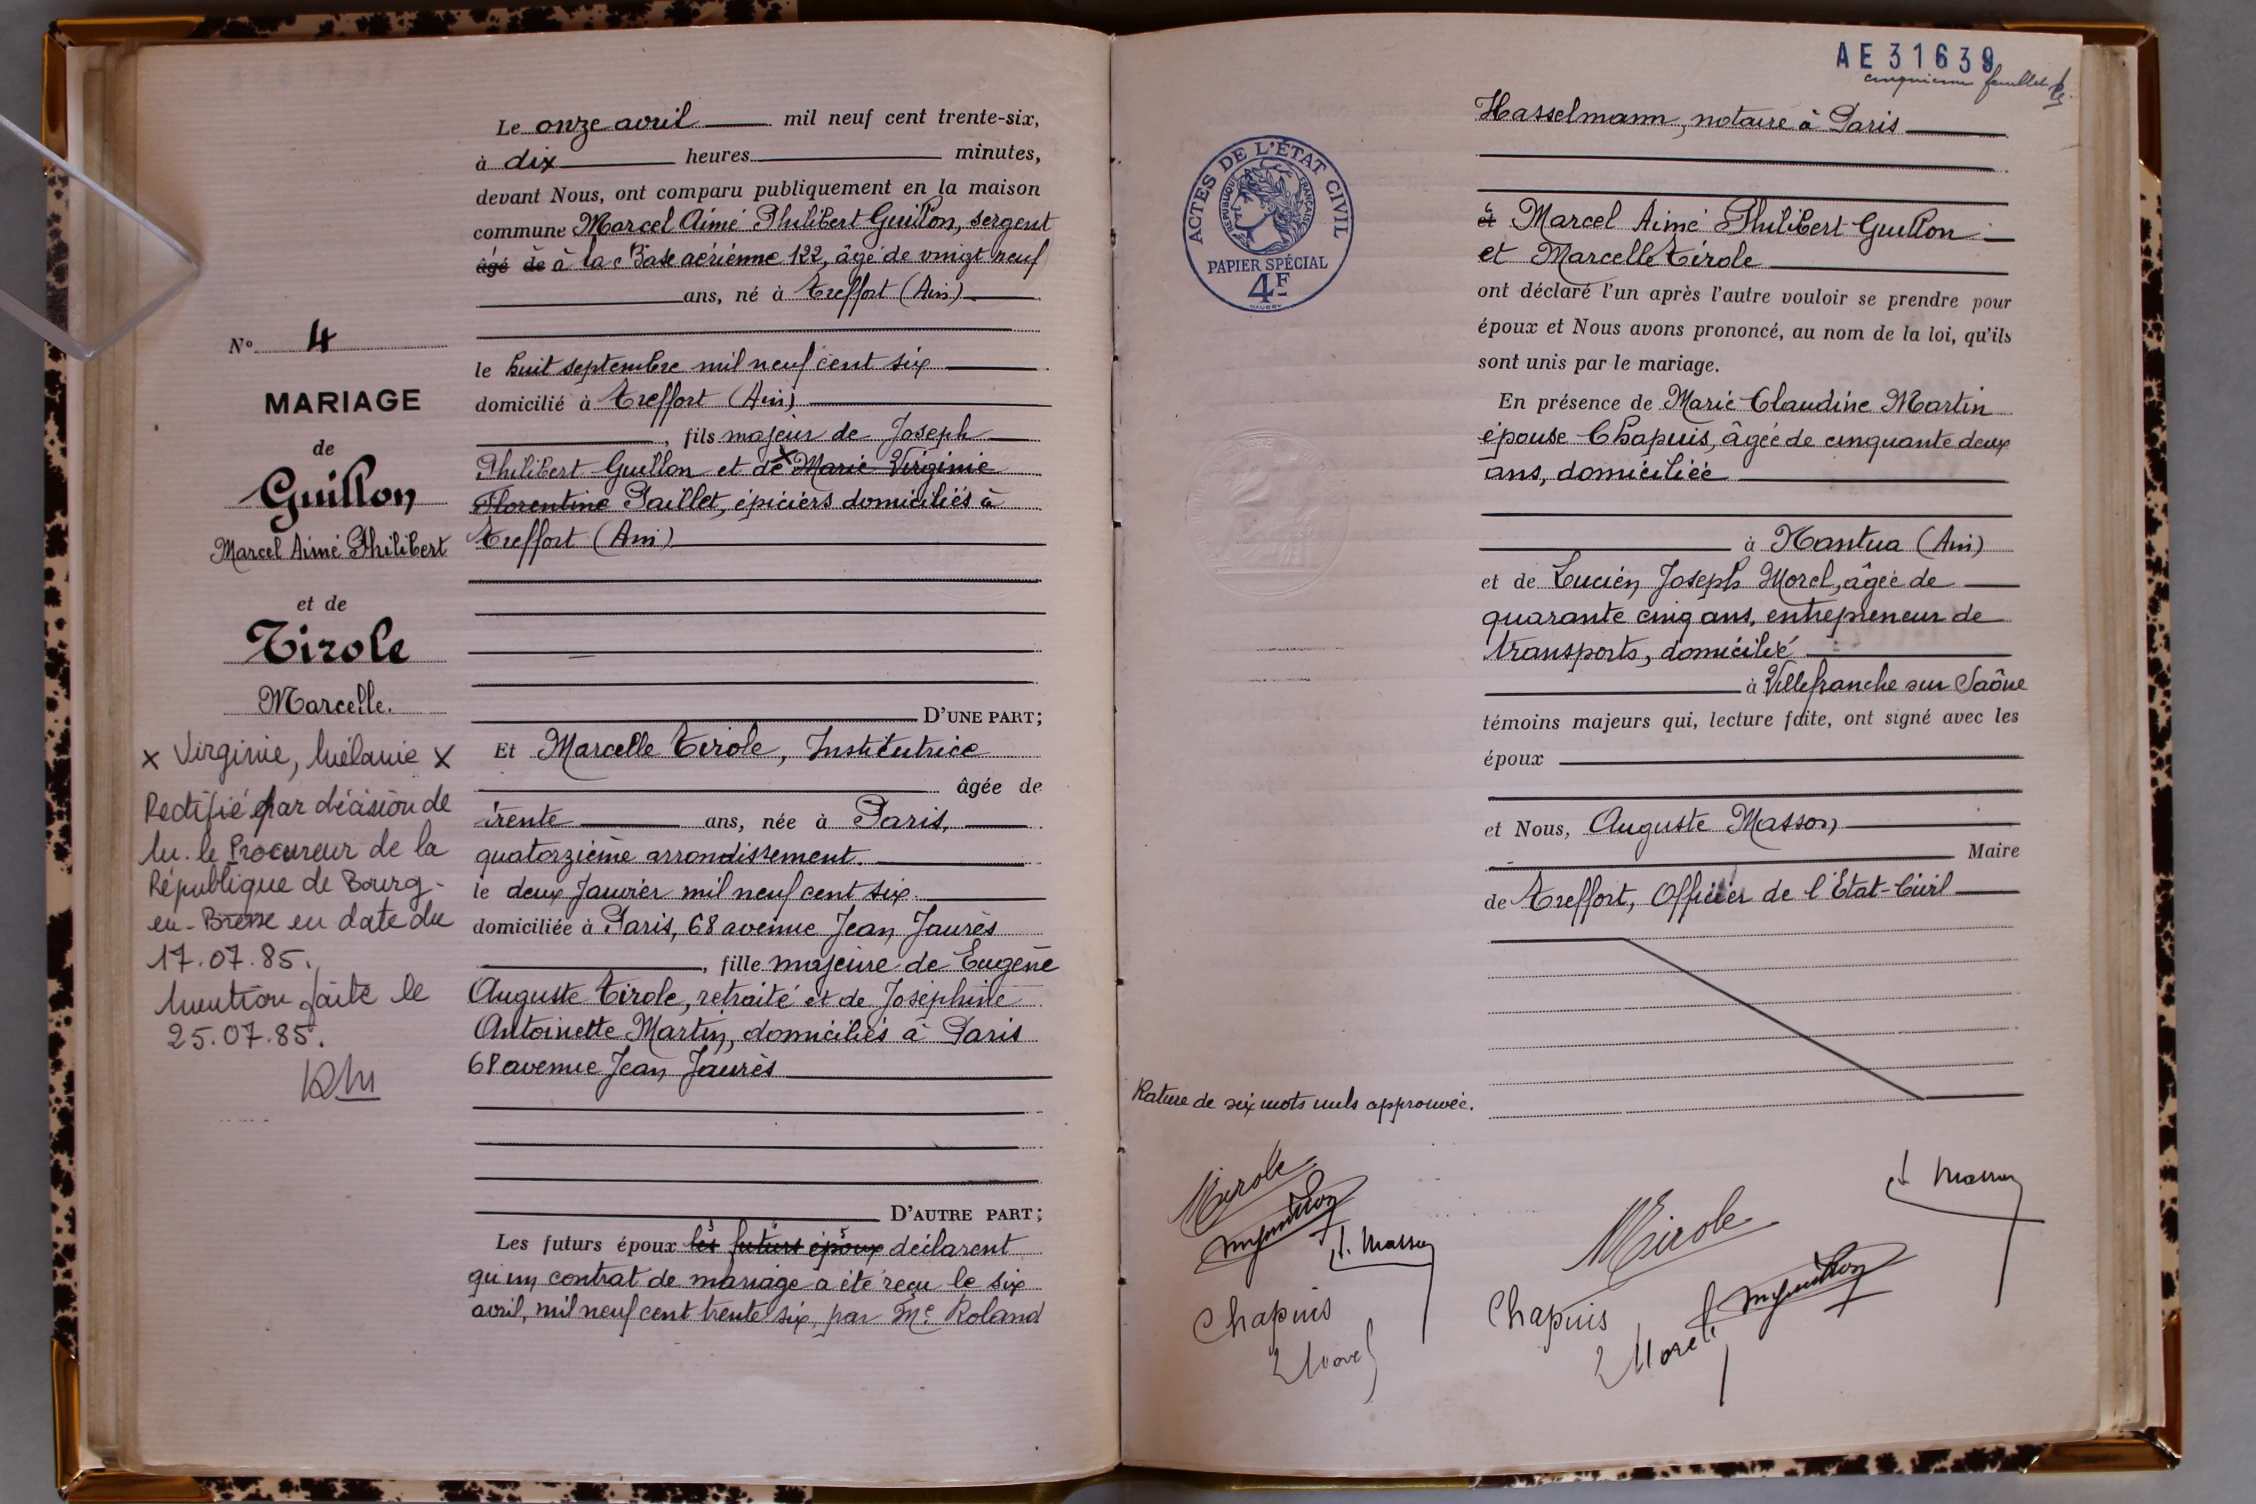 Le onze avril mil neuf cent trente-six,
à dix heures minutes,
devant Nous, ont comparu publiquement en la maison
commune Marcel Aimé Philibert Guillon, sergent
âgé de à la Base aérienne 122, âgé de vingt neuf
ans, né à Treffort (Ain)
le huit septembre mil neuf cent six
domicilié à Treffort (Ain)
, fils majeur de Joseph
Philibert Guillon et de x Marie Virginie
Florentine Paillet, épiciers domiciliés à
Treffort (Ain)
D'UNE PART;
Et Marcelle Tirole, Institutrice
âgée de
trente ans, née à Paris,
quatorzième arrondissement.
le deux Janvier mil neuf cent six
domiciliée à Paris, 68 avenue Jean Jaurès
, fille majeure de Eugène
Auguste Tirole, retraité et de Joséphine
Antoinette Martin, domiciliés à Paris
68 avenue Jean Jaurès
D'AUTRE PART;
Les futurs époux les futurs époux déclarent
qu'un contrat de mariage a été reçu le six
avril, mil neuf cent trente six, par Me Roland
N° 4
MARIAGE
de
Guillon
Marcel Aimé Philibert
et de
Tirole
Marcelle.
x Virginie, Mélanie x
Rectifié par décision de
M. le Procureur de la
République de Bourg-
en-Bresse en date du
17.07.85.
Mention faite le
25.07.85.
AE31639
cinquième feuillet
ACTES DE L'ÉTAT CIVIL
RÉPUBLIQUE FRANÇAISE
PAPIER SPÉCIAL
4F
Hasselmann, notaire à Paris
et Marcel Aimé Philibert Guillon
et Marcelle Tirole
ont déclaré l'un après l'autre vouloir se prendre pour
époux et Nous avons prononcé, au nom de la loi, qu'ils
sont unis par le mariage.
En présence de Marie Claudine Martin
épouse Chapuis, âgée de cinquante deux
ans, domiciliée
à Nantua (Ain)
et de Lucien Joseph Morel, âgée de
quarante cinq ans, entrepreneur de
transports, domicilié
à Villefranche sur Saône
témoins majeurs qui, lecture faite, ont signé avec les
époux
et Nous, Auguste Masson
Maire
de Treffort, Officier de l'Etat-Civil
Rature de six mots nuls approuvée.
MTirole
mguillon
A. Masson
Chapuis
Morel
MTirole
A. Masson
mguillon
Chapuis
Morel